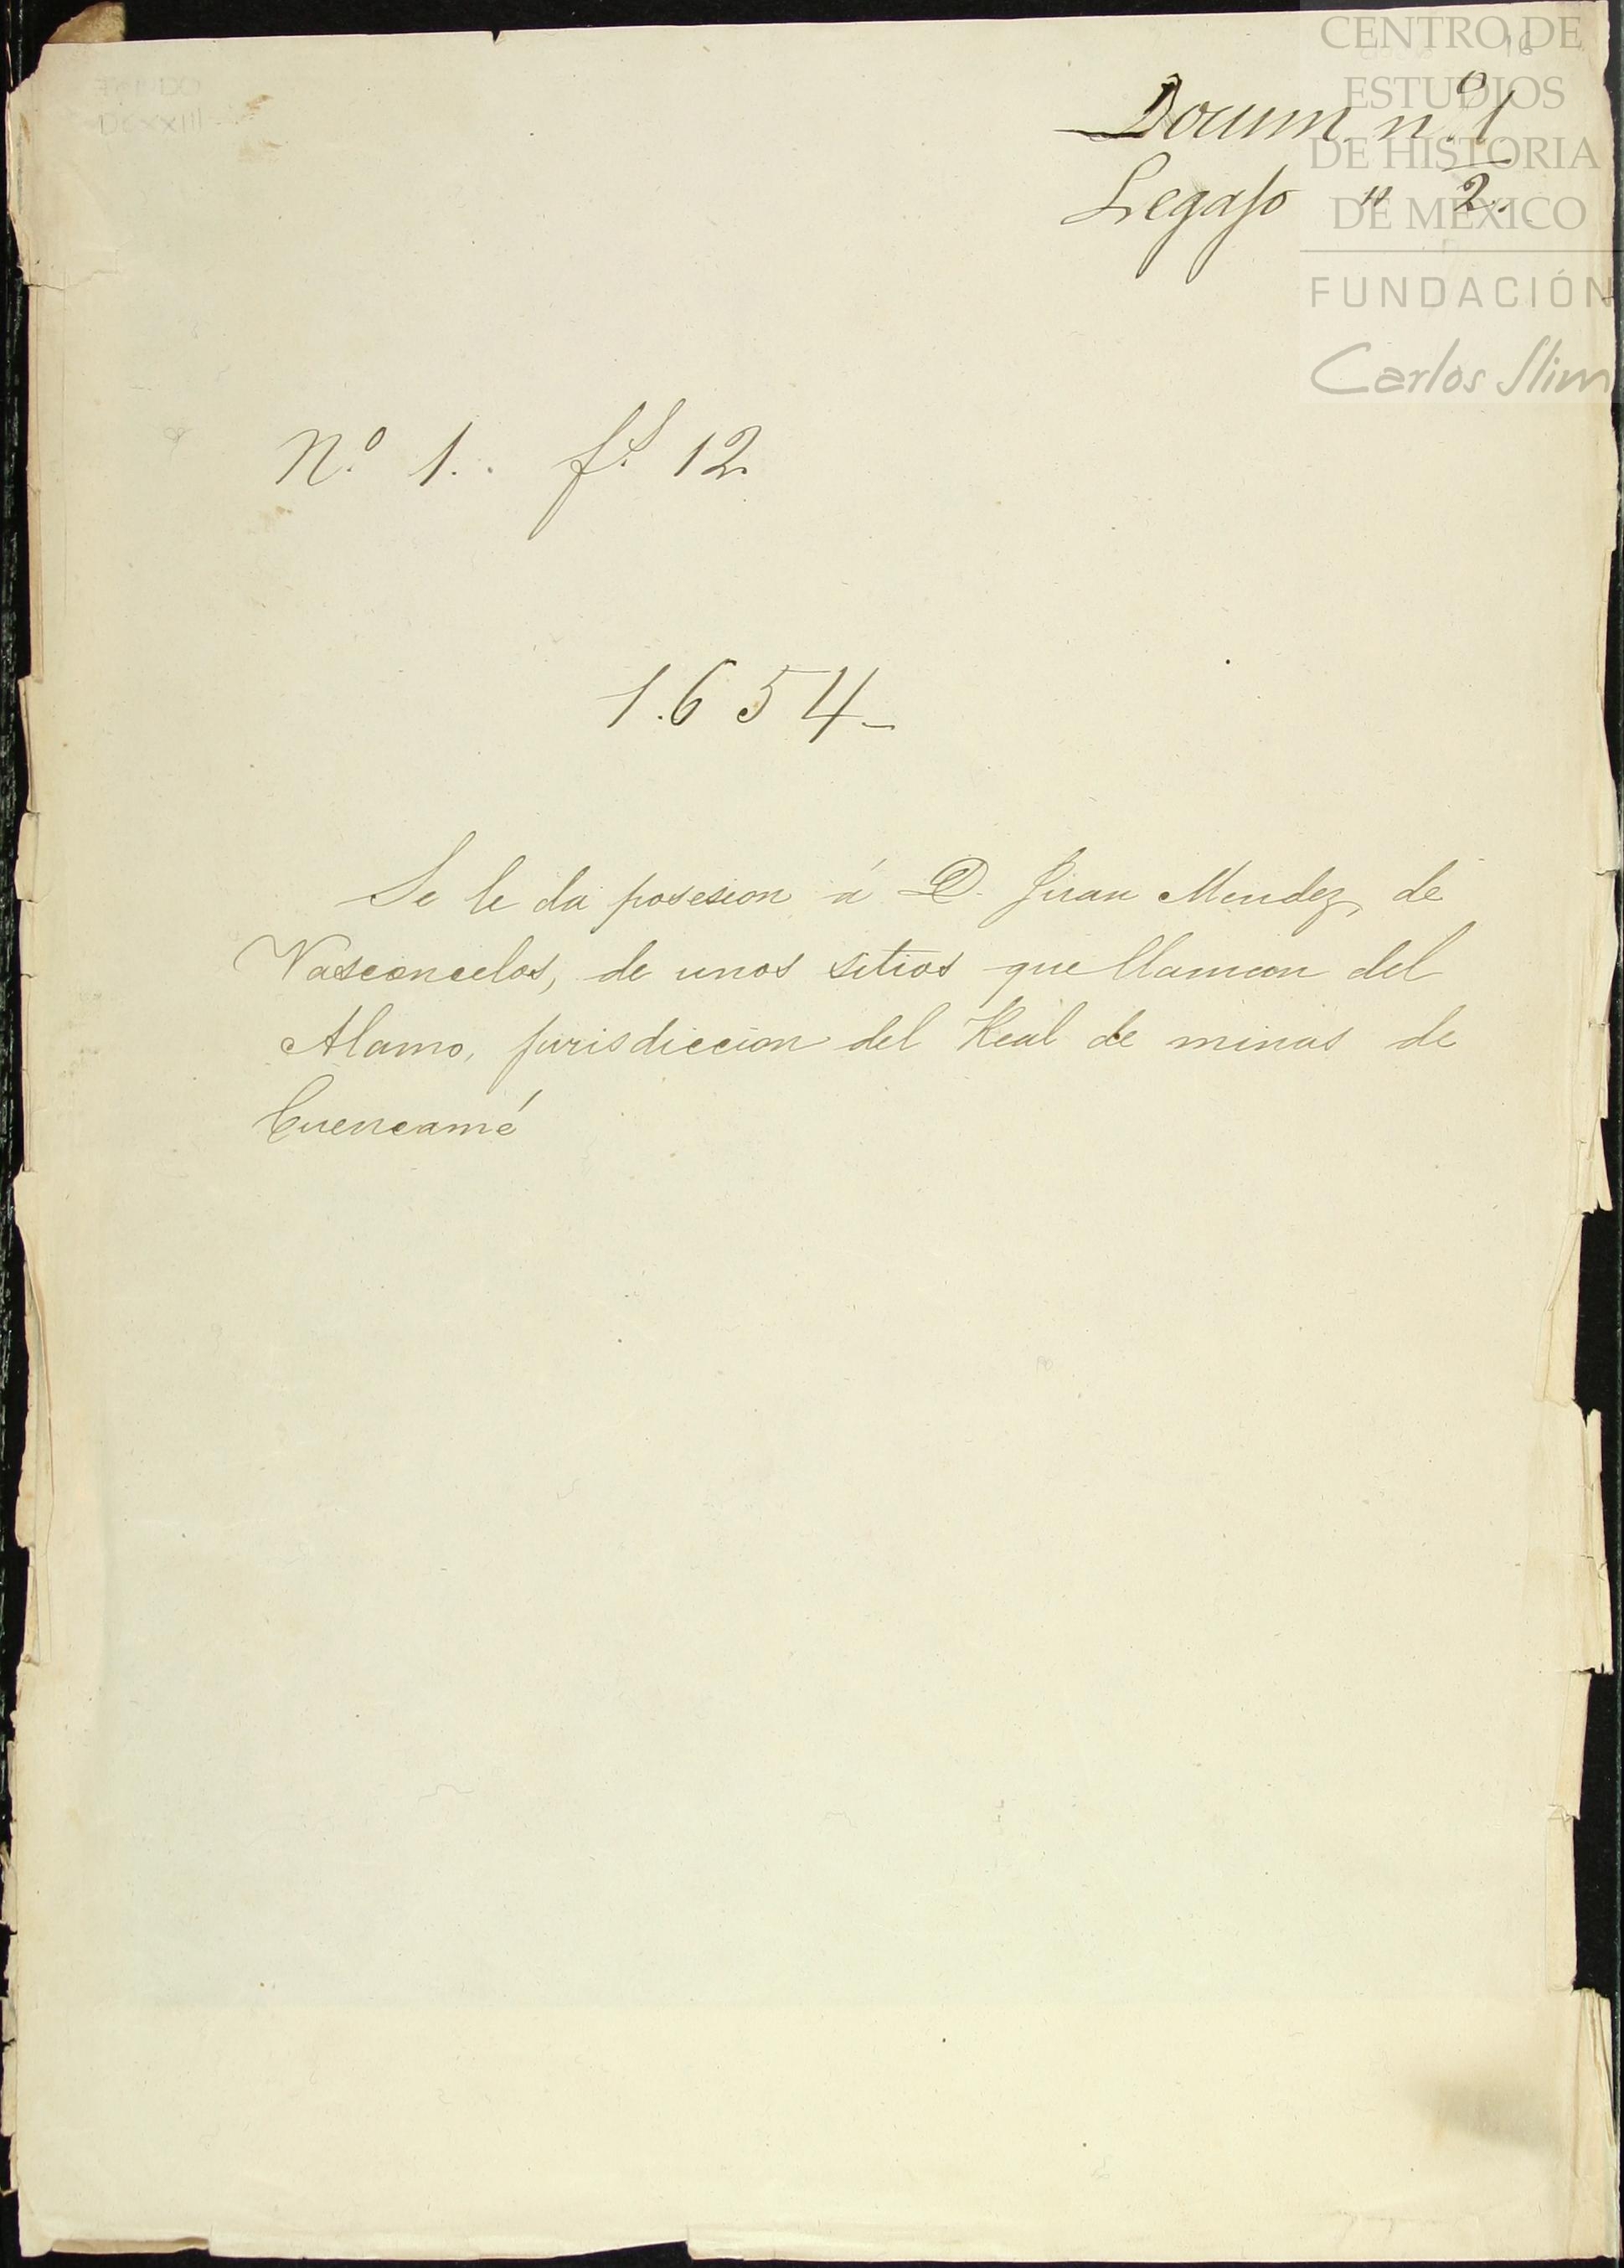 FONDO
DCXXIII
16
CENTRO DE
ESTUDIOS
DE HISTORIA
DE MÉXICO
FUNDACIÓN
Carlos Slim
Docum. n.º 1
Legajo " 2.
N.º 1. f.s 12.
1.654_
Se le da posesion á D. Juan Mendez de
Vasconcelos, de unos sitios que llaman del
Alamo, jurisdiccion del Real de minas de
Cuencamé